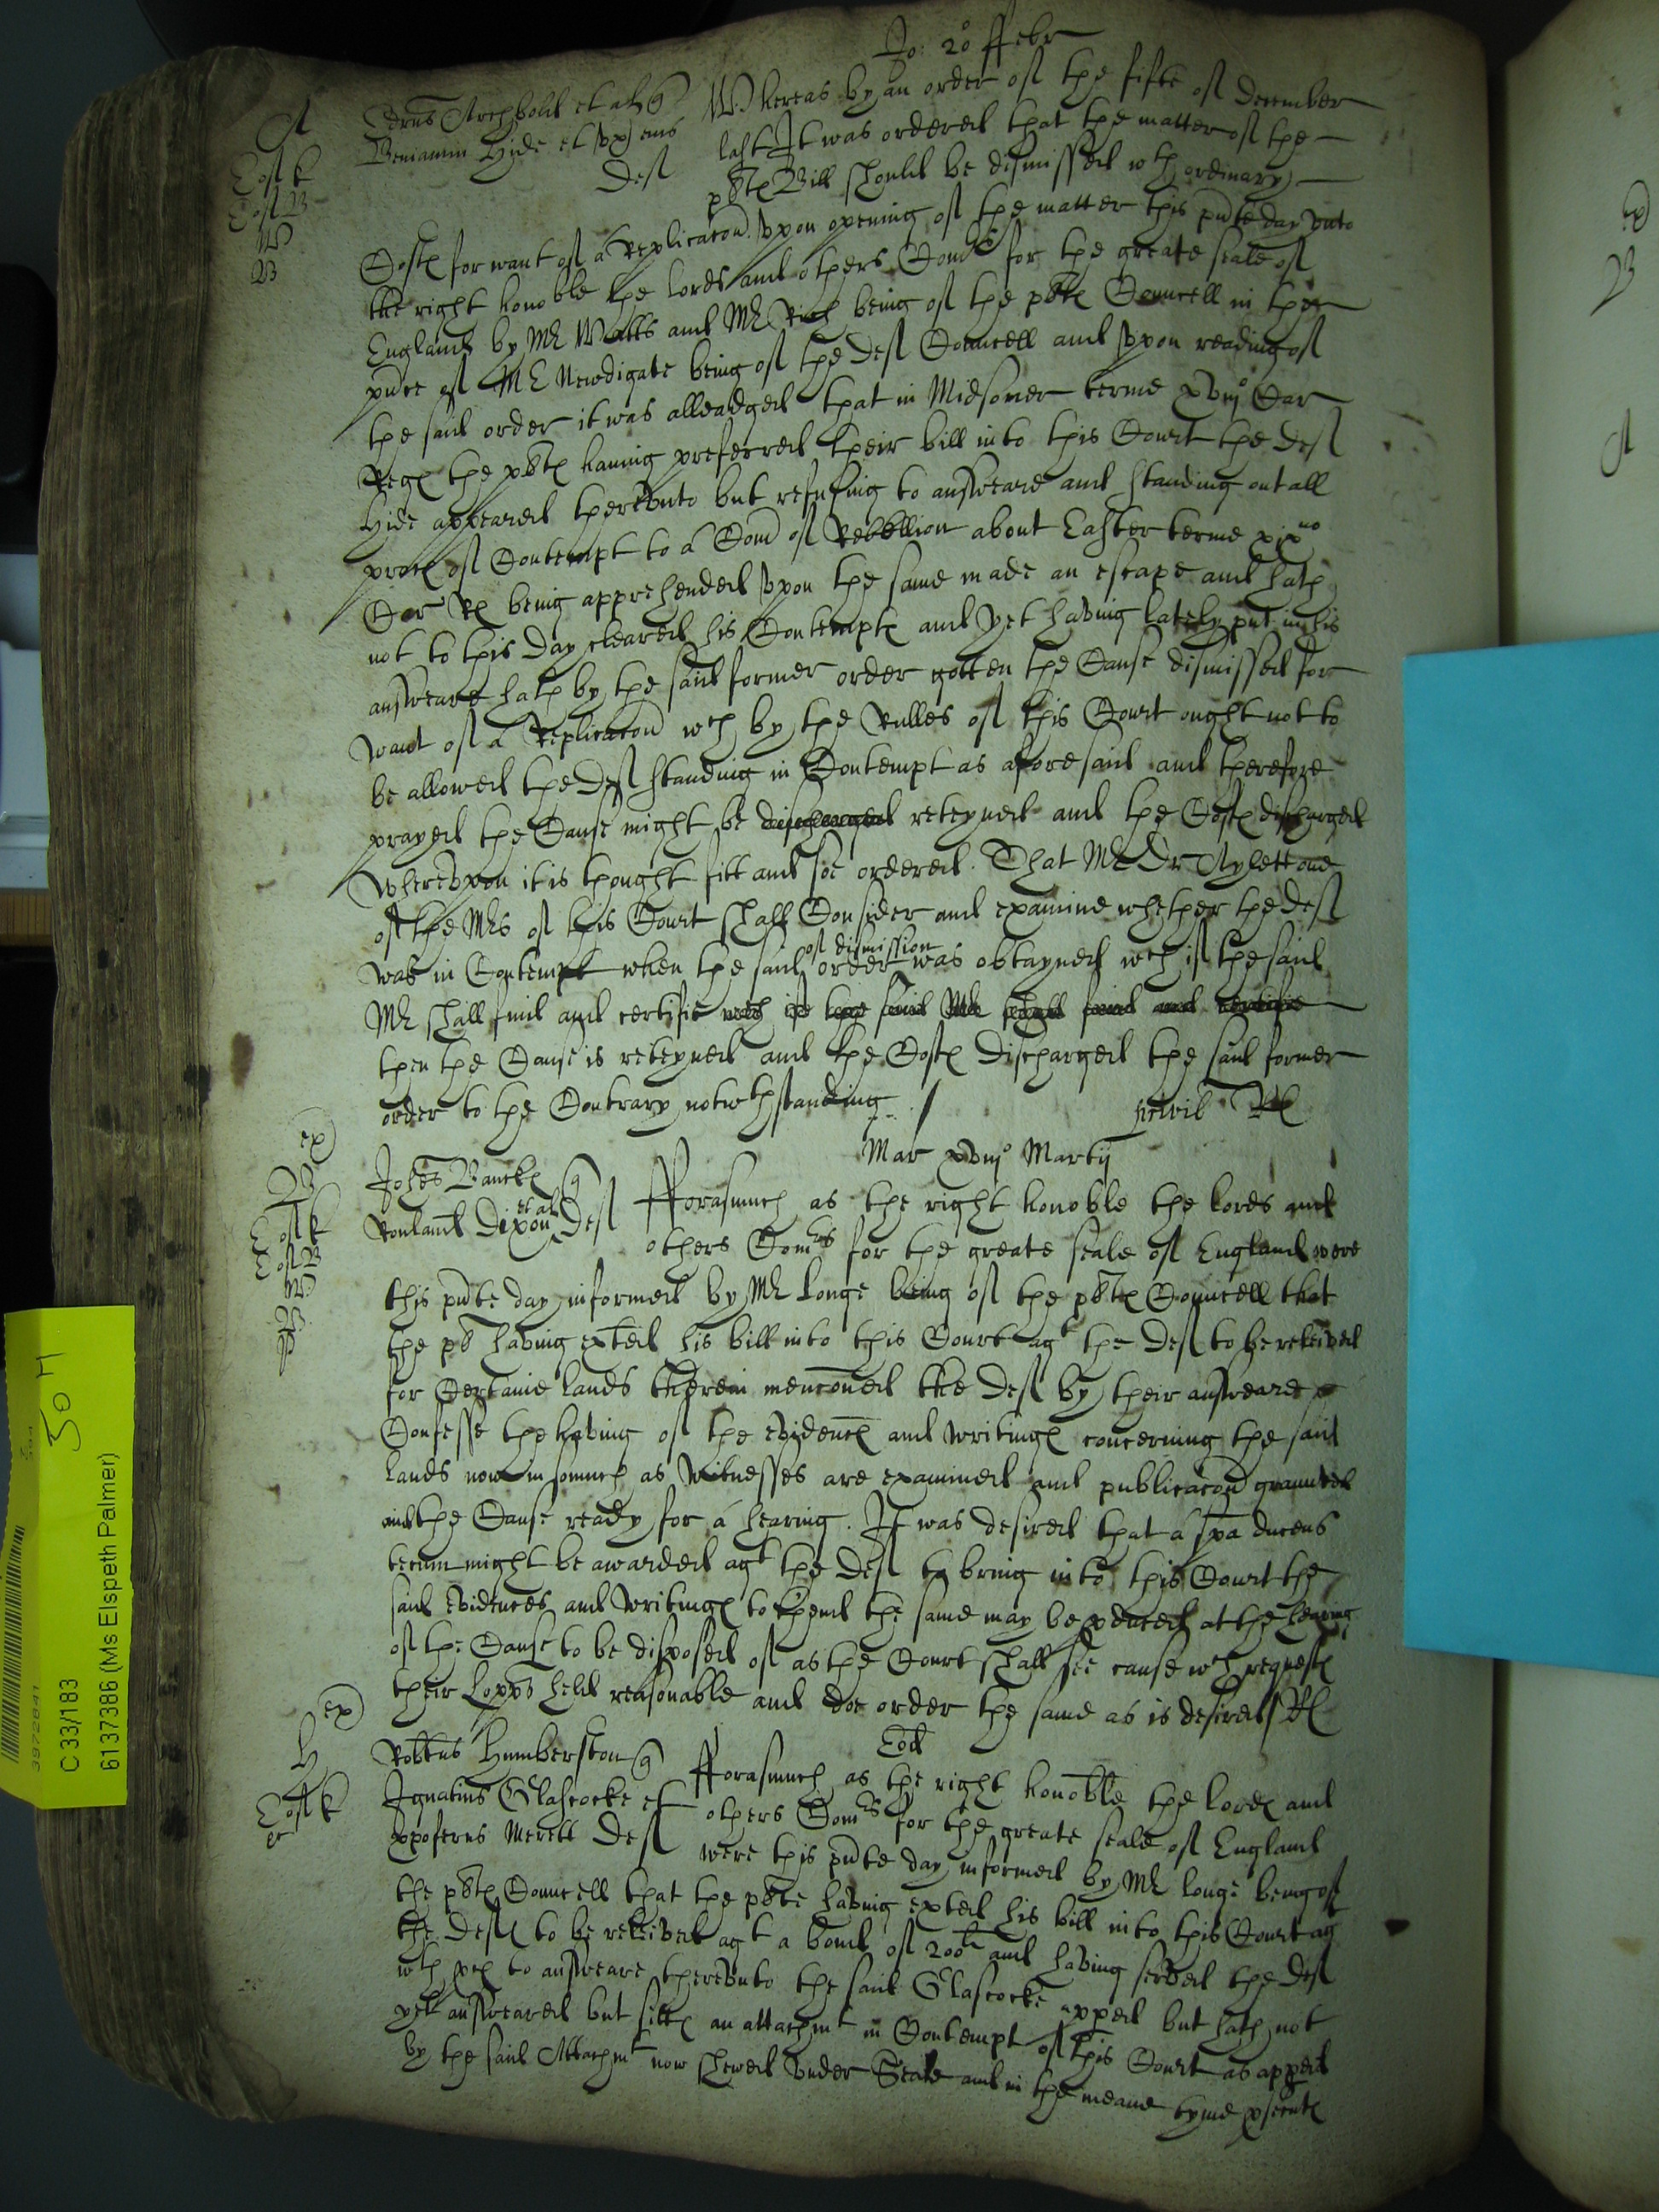 Jo: 20 ffebr
A
Edrus Archbold et al q
Beniamin Hide et vx eius
Def
Whereas by an order of the fifte of December
last It was ordered that the matter of the
pltes Bill should be dismissed wth ordinary
Costes for want of a Replicacon. Vpon opening of the matter this pnte day vnto
the right honoble the Lords and others Comrs for the greate seale of
England by Mr Watts and Mr Rich being of the pltes Councell in the
pnce of Mr Newdigate being of the Def Councell and vpon reading of
the said order it was alleadged that in Midsomer terme xviijo Car
Regs the pltes having preferred their bill into this Court the Def
Hide appeared therevnto but refusing to answeare and standing out all
proces of Contempt to a Com of Rebellion about Easter terme xixno
Car Rs being apprehended vpon the same made an escape and hath
not to this day cleared his Contemptes and yet having lately put in his
answeare hath by the said former order gotten the Cause dismissed for
want of a Replicacon wch by the Rulles of this Court ought not to
be allowed the Def standing in Contempt as aforesaid and therefore
prayed the Cause might be discharged reteyned and the Costes discharged
Wherevpon it is thought fitt and soe ordered. That Mr Dr Aylett one
of the Mrs of this Court shall Consider and examine whether the Def
of dismission
was in Contempt when the said order was obtayned wch if the said
Mr shall find and certifie wch if the said Mr shall find and certifie
then the Cause is reteyned and the Costes discharged the said former
order to the Contrary notwthstanding /
Mar xviijo Martij
ex
Johes Banckes q
Rouland Dixon et al Def
fforasmuch as the right honoble the Lords and
others Comrs for the greate seale of England were
this pnte day informed by Mr Longe being of the pltes Councell that
the pl having exted his bill into this Court agt the Def to be releived
for Certaine lands therein menconed the Def by their answeare
Confesse the having of the evidences and writinges concerning the said
lands now insomuch as Witnesses are examined and publicacon graunted
and the Cause ready for a hearing. It was desired that a spa ducens
tecum might be awarded agt the Def to bring into this Court the
said evidences and writinges to thend the same may be pduced at the hearing
of the Cause to be disposed of as the Court shall see cause wch requestes
their Lopps held reasonable and doe order the same as is desired / Rl
ex
H
Eod
Robtus Humberston q
Ignatius Glascocke et
xpoferus Merell Def
fforasmuch as the right honoble the lordes and
others Comrs for the greate seale of England
were this pnte day informed by Mr Longe being of
the pltes Councell that the plte having exted his bill into this Court agt
the Defs to be releived agt a bond of 200li and having served the Def
wth pces to answeare therevnto the said Glascocke apped but hath not
yett answeared but sittes an attachmt in Contempt of this Court as apped
by the said Attachmt now shewed vnder Seale and in the meane tyme psecutes
C 33/183
6137386 (Ms Elspeth Palmer)
3972841